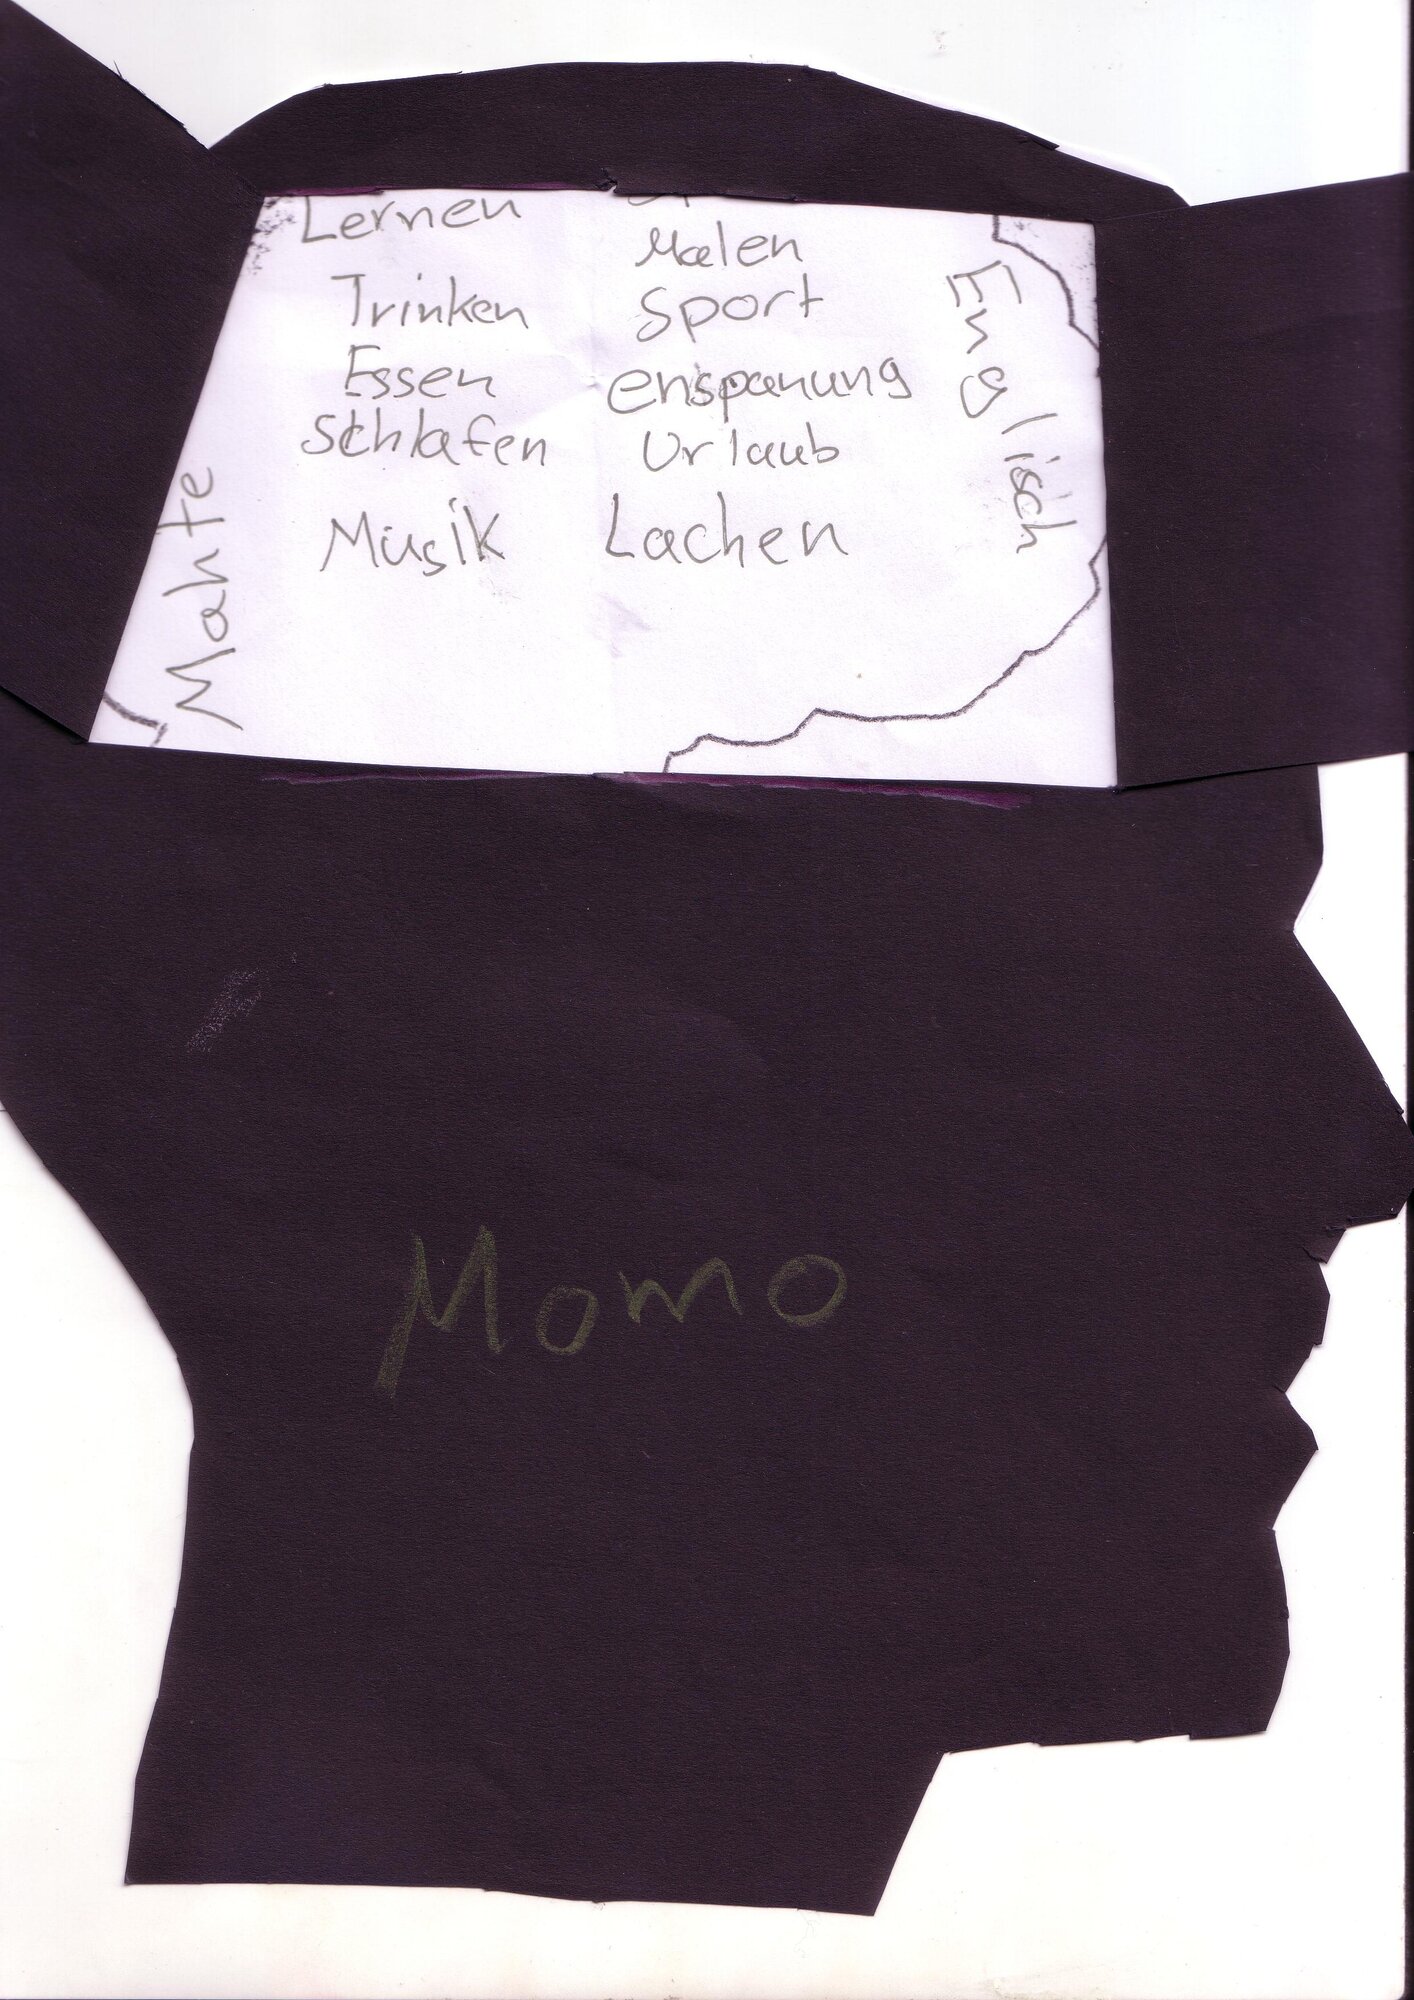 Lernen
Trinken
Essen
Schlafen
Musik
Malen
Sport
enspanung
Urlaub
Lachen
Mahte
Englisch
Momo